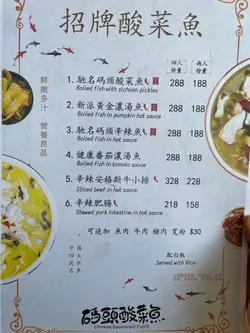 招牌酸菜魚
鮮嫩多汁 營養良品
四人份量 兩人份量
1. 馳名碼頭酸菜魚 288 188
Boiled fish with sichuan pickles
2. 新派黃金濃湯魚 288 188
Boiled fish in pumpkin hot sauce
3. 馳名碼頭辛辣魚 288 188
Boiled fish in hot sauce
4. 健康蕃茄濃湯魚 288 188
Boiled fish in tomato sauce
5. 辛辣安格斯牛小排 328 228
Sliced beef in hot sauce
6. 辛辣肥腸 218 158
Stewed pork intestine in hot sauce
可追加 魚肉 牛肉 豬肉 寬粉 $30
配白飯
Served with Rice
碼頭酸菜魚
Chinese Sauerkraut Fish